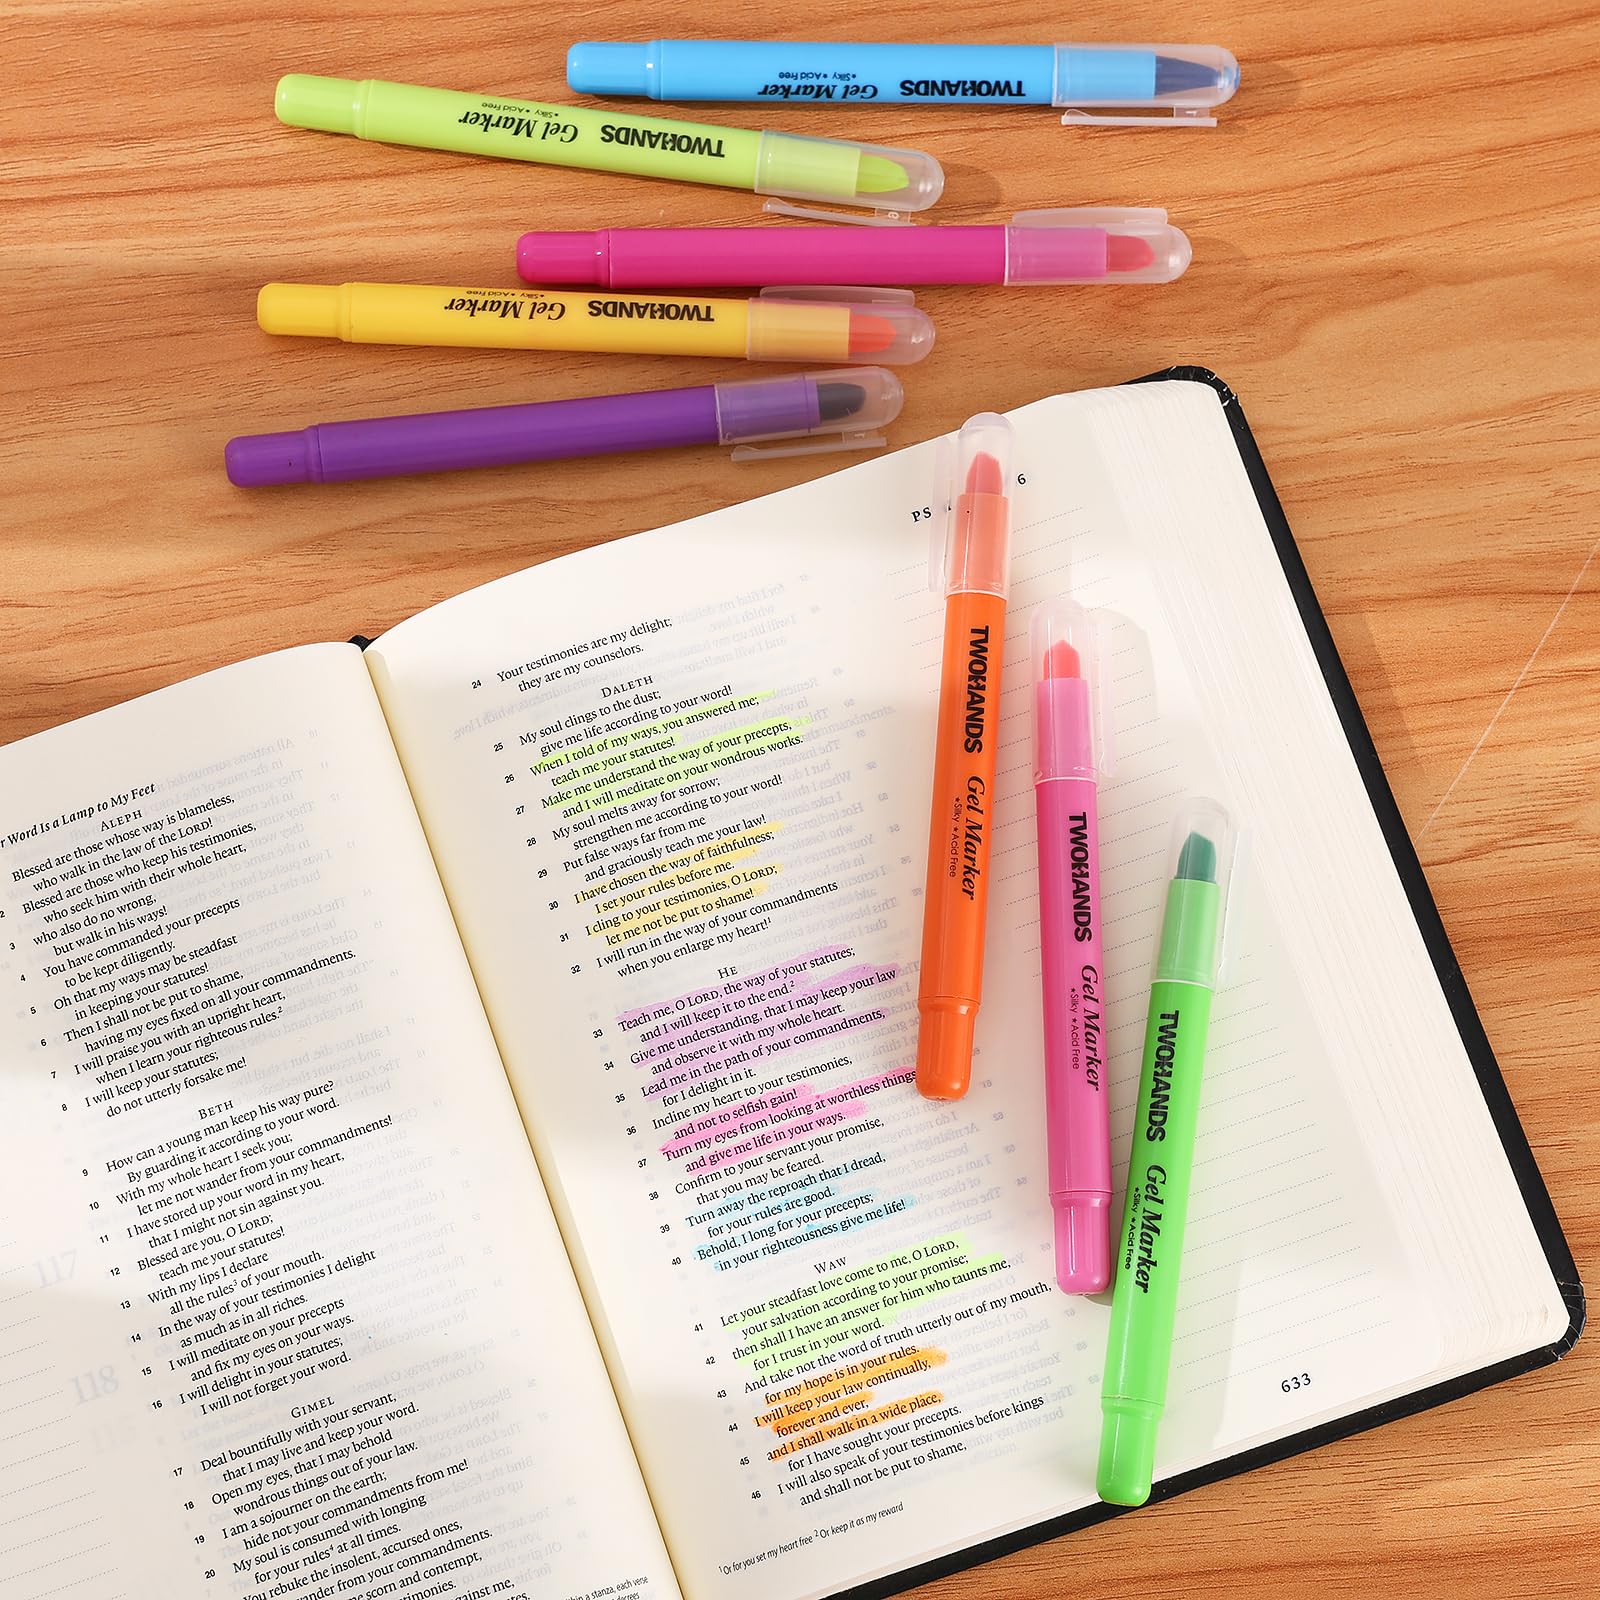 TWOHANDS Gel Marker
*Silky *Acid Free
TWOHANDS Gel Marker
*Silky *Acid Free
TWOHANDS Gel Marker
*Silky *Acid Free
TWOHANDS Gel Marker
*Silky *Acid Free
TWOHANDS Gel Marker
*Silky *Acid Free
TWOHANDS Gel Marker
*Silky *Acid Free
Word Is a Lamp to My Feet
ALEPH
Blessed are those whose way is blameless,
who walk in the law of the LORD!
2 Blessed are those who keep his testimonies,
who seek him with their whole heart,
3 who also do no wrong,
but walk in his ways!
4 You have commanded your precepts
to be kept diligently.
5 Oh that my ways may be steadfast
in keeping your statutes!
6 Then I shall not be put to shame,
having my eyes fixed on all your commandments.
7 I will praise you with an upright heart,
when I learn your righteous rules.2
8 I will keep your statutes;
do not utterly forsake me!
BETH
9 How can a young man keep his way pure?
By guarding it according to your word.
10 With my whole heart I seek you;
let me not wander from your commandments!
11 I have stored up your word in my heart,
that I might not sin against you.
12 Blessed are you, O LORD;
teach me your statutes!
13 With my lips I declare
all the rules3 of your mouth.
14 In the way of your testimonies I delight
as much as in all riches.
15 I will meditate on your precepts
and fix my eyes on your ways.
16 I will delight in your statutes;
I will not forget your word.
GIMEL
17 Deal bountifully with your servant,
that I may live and keep your word.
18 Open my eyes, that I may behold
wondrous things out of your law.
19 I am a sojourner on the earth;
hide not your commandments from me!
20 My soul is consumed with longing
for your rules4 at all times.
You rebuke the insolent, accursed ones,
wander from your commandments.
me scorn and contempt,
testimonies.
against me,
within a stanza, each verse
decrees
PS 6
24 Your testimonies are my delight;
they are my counselors.
DALETH
25 My soul clings to the dust;
give me life according to your word!
26 When I told of my ways, you answered me;
teach me your statutes!
27 Make me understand the way of your precepts,
and I will meditate on your wondrous works.
28 My soul melts away for sorrow;
strengthen me according to your word!
29 Put false ways far from me
and graciously teach me your law!
30 I have chosen the way of faithfulness;
I set your rules before me.
31 I cling to your testimonies, O LORD;
let me not be put to shame!
32 I will run in the way of your commandments
when you enlarge my heart!1
HE
33 Teach me, O LORD, the way of your statutes;
and I will keep it to the end.2
34 Give me understanding, that I may keep your law
and observe it with my whole heart.
35 Lead me in the path of your commandments,
for I delight in it.
36 Incline my heart to your testimonies,
and not to selfish gain!
37 Turn my eyes from looking at worthless things;
and give me life in your ways.
38 Confirm to your servant your promise,
that you may be feared.
39 Turn away the reproach that I dread,
for your rules are good.
40 Behold, I long for your precepts;
in your righteousness give me life!
WAW
41 Let your steadfast love come to me, O LORD,
your salvation according to your promise;
42 then shall I have an answer for him who taunts me,
for I trust in your word.
43 And take not the word of truth utterly out of my mouth,
for my hope is in your rules.
44 I will keep your law continually,
forever and ever,
45 and I shall walk in a wide place,
for I have sought your precepts.
46 I will also speak of your testimonies before kings
and shall not be put to shame.
1 Or for you set my heart free 2 Or keep it as my reward
633